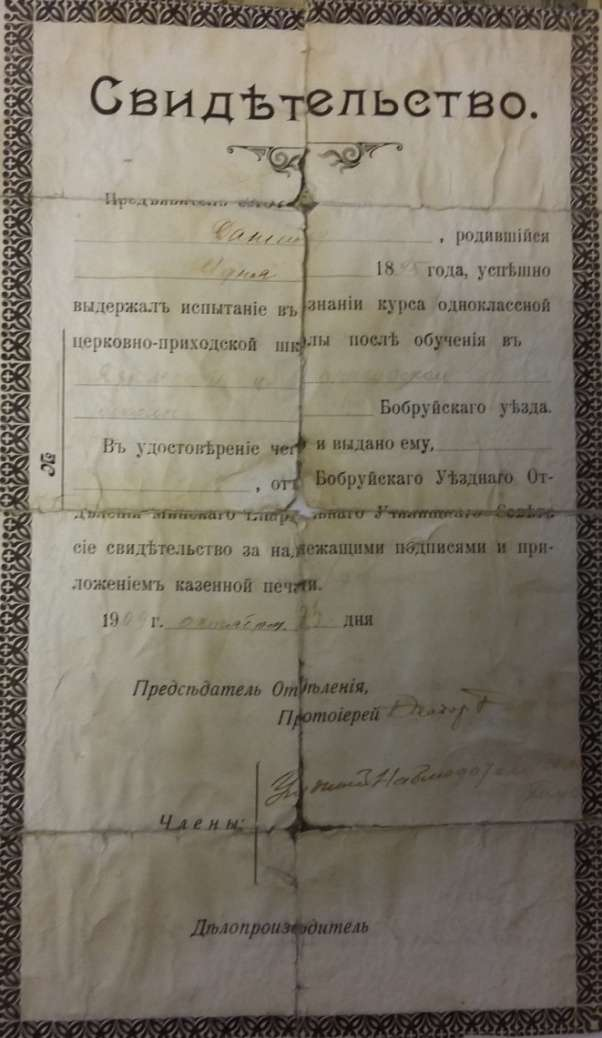 Свидѣтельство.
, родившійся
дня 18 года, успѣшно
выдержалъ испытаніе въ знаніи курса одноклассной
церковно-приходской школы послѣ обученія въ
Бобруйскаго уѣзда.
Въ удостовѣреніе чего и выдано ему,
№
, отъ Бобруйскаго Уѣзднаго От-
дѣленія Минскаго Епархіальнаго Училищнаго Совѣта
сіе свидѣтельство за надлежащими подписями и при-
ложеніемъ казенной печати.
19 г. октября 23 дня
Предсѣдатель Отдѣленія,
Протоіерей
Члены:
Дѣлопроизводитель